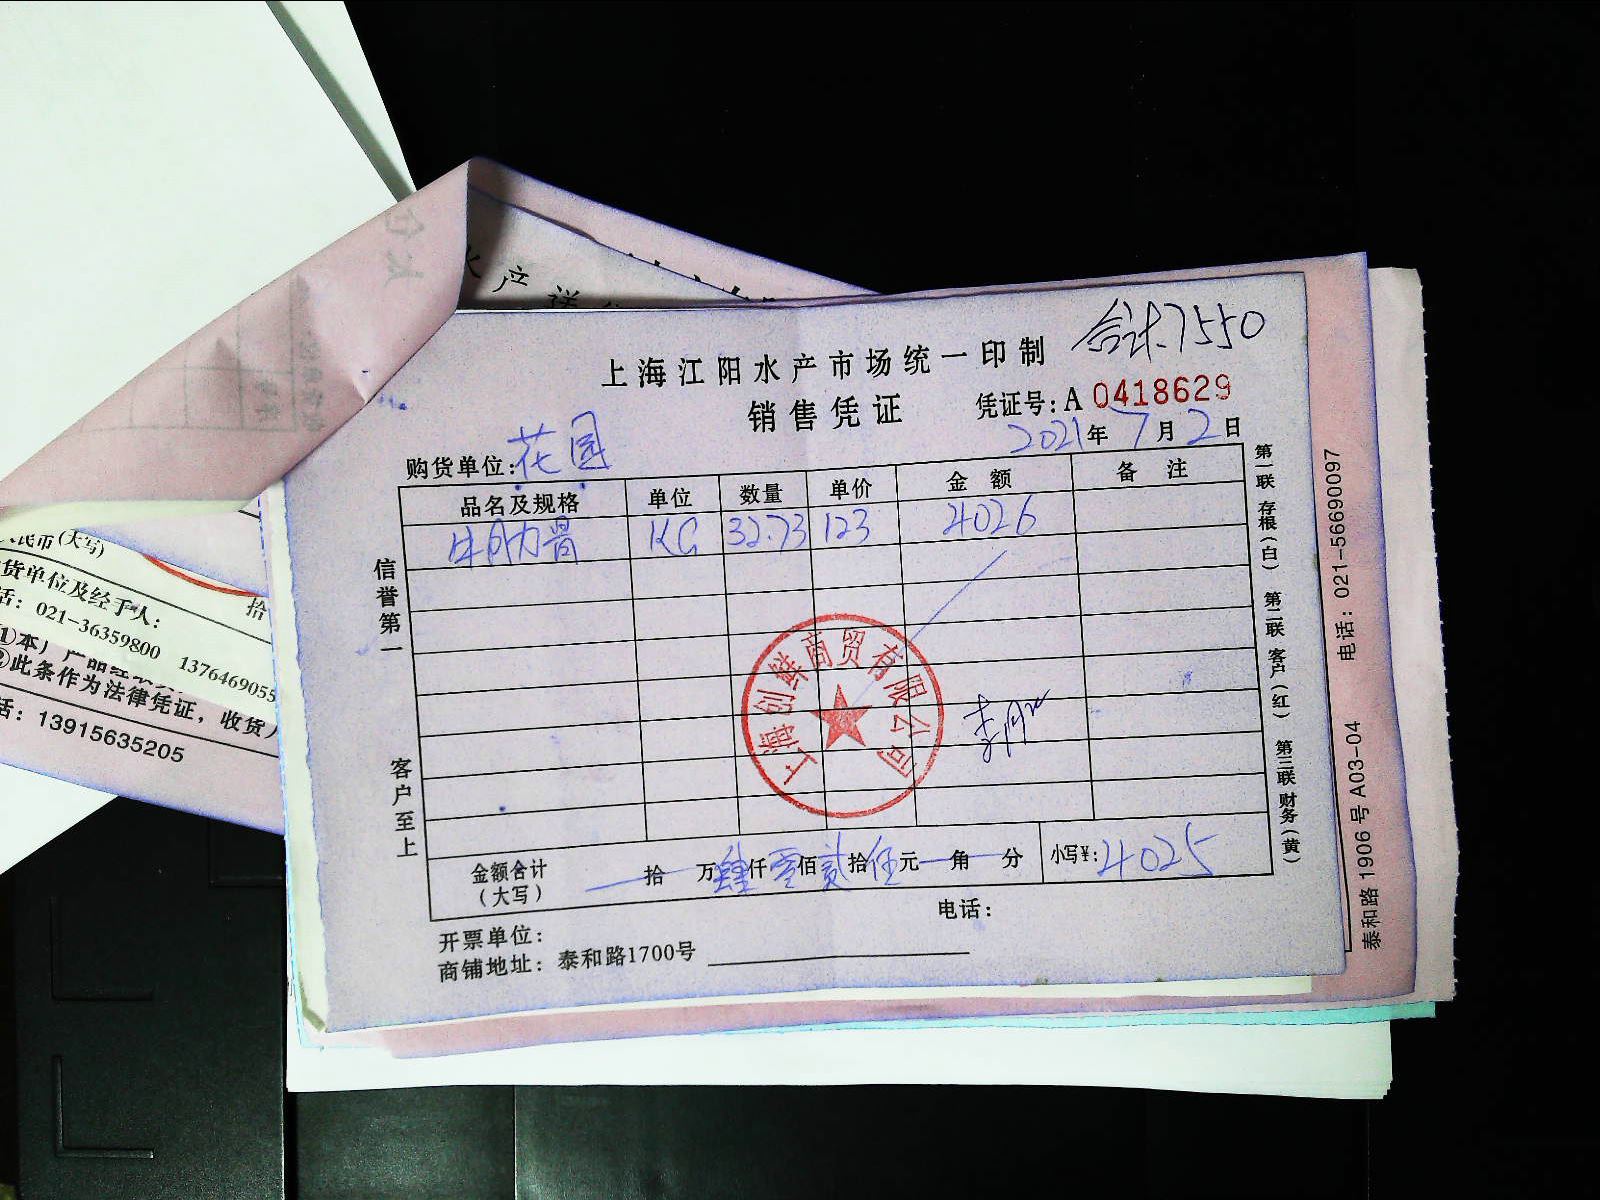 合计7550
上海江阳水产市场统一印制
销售凭证
凭证号: A 0418629
2021年7月2日
购货单位: 花园
品名及规格 单位 数量 单价 金额 备注
牛肋骨 KG 32.73 123 4026
信誉第一
客户至上
上海创 商贸有限公司
金额合计(大写) 拾 万肆仟零佰贰拾伍元 角 分 小写¥: 4025
开票单位: 电话:
商铺地址: 泰和路1700号
第一联 存根(白) 第二联 客户(红) 第三联 财务(黄)
泰和路 1906 号 A03-04 电话: 021-56690097
水产送
民币(大写)
拾
货单位及经手人:
话: 021-36359800 1376469055
①本
②此条作为法律凭证, 收货
话: 13915635205